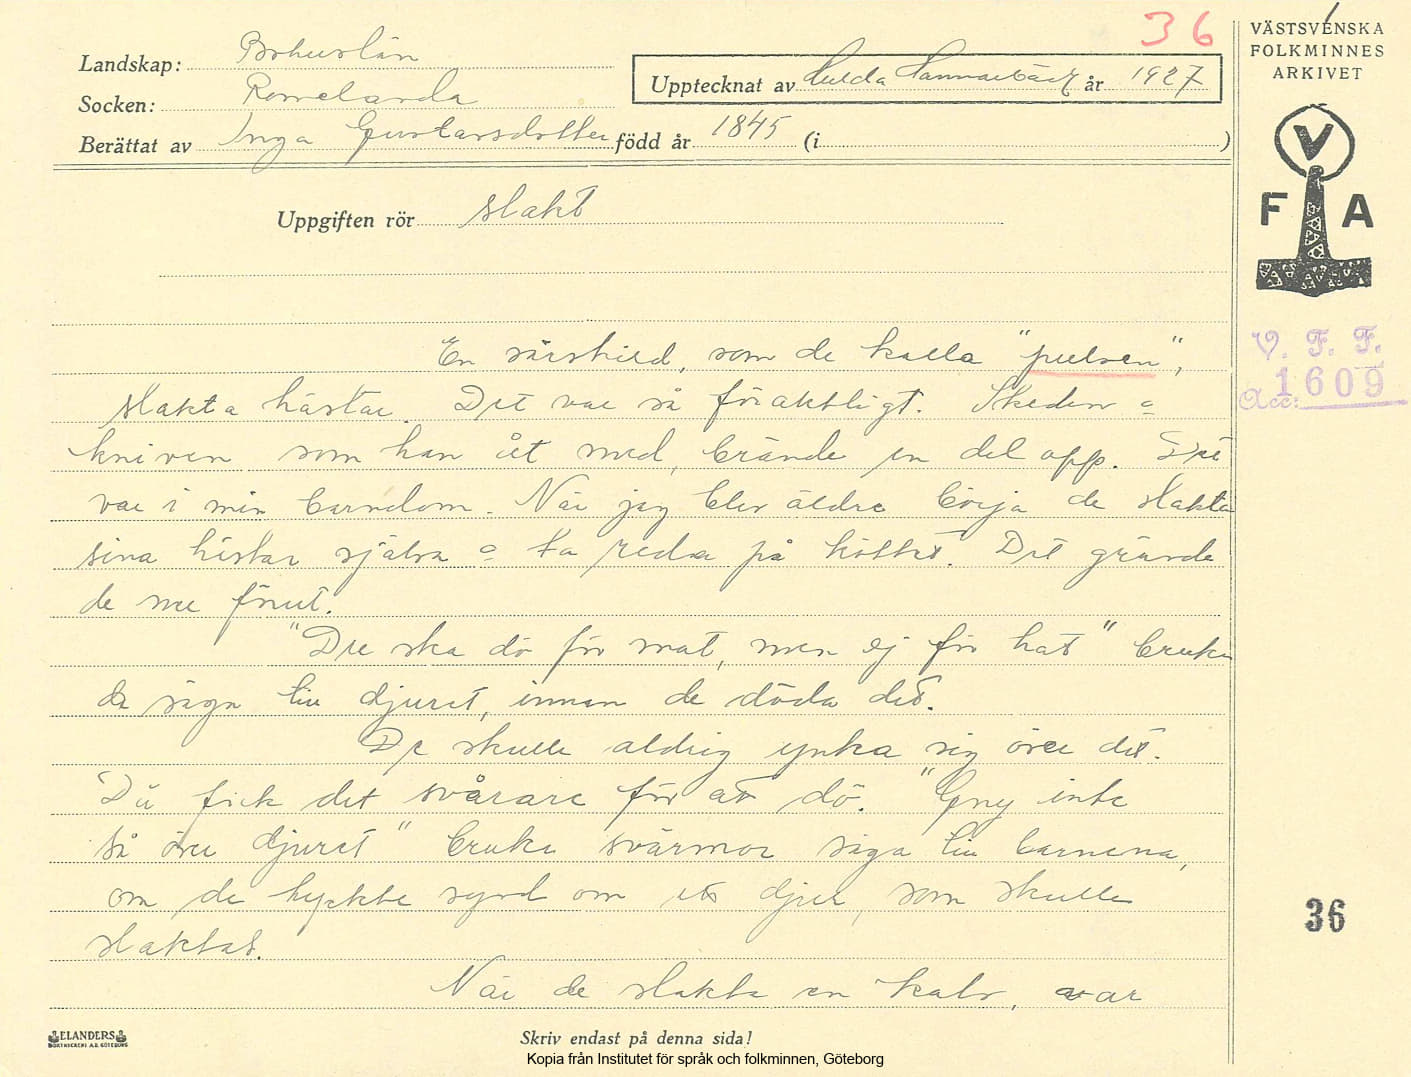 36
VÄSTSVENSKA
FOLKMINNES
ARKIVET
Landskap: Bohuslän
Upptecknat av Hulda Hammarbäck år 1927
Socken: Romelanda
Berättat av Inga Gustavsdotter född år 1845 (i )
V
F A
Uppgiften rör slakt
V. F. F.
Acc: 1609
En särskild, som de kalla "pulven",
slakta hästar. Det var så föraktligt. Skeden o
kniven som han åt med, brände en del opp. Det
var i min barndom. När jag blev äldre börja de slakta
sina hästar själva o ta reda på köttet. Det grävde
de ner förut.
"Du ska dö för mat, men ej för hat" bruka
de säga till djuret, innan de döda det.
De skulle aldrig ynka sig över det.
Då fick det svårare för att dö. "Gny inte
så över djuret" bruka svärmor säga till barnena,
om de tyckte synd om ett djur, som skulle
slaktas.
När de slakta en kalv, var
36
ELANDERS
BOKTRYCKERI A.B. GÖTEBORG
Skriv endast på denna sida!
Kopia från Institutet för språk och folkminnen, Göteborg